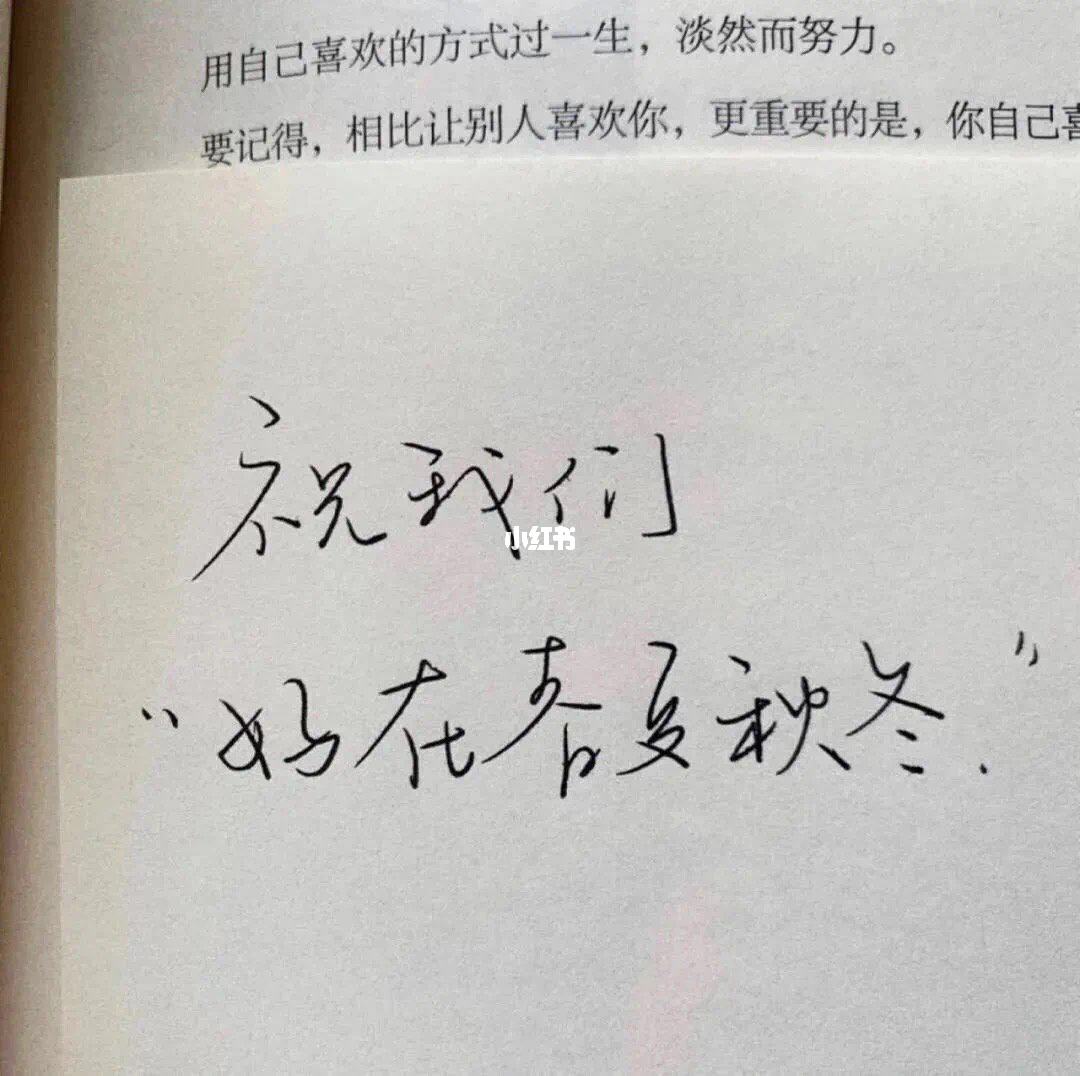 用自己喜欢的方式过一生，淡然而努力。
要记得，相比让别人喜欢你，更重要的是，你自己喜
祝我们
小红书
“好在春夏秋冬.”